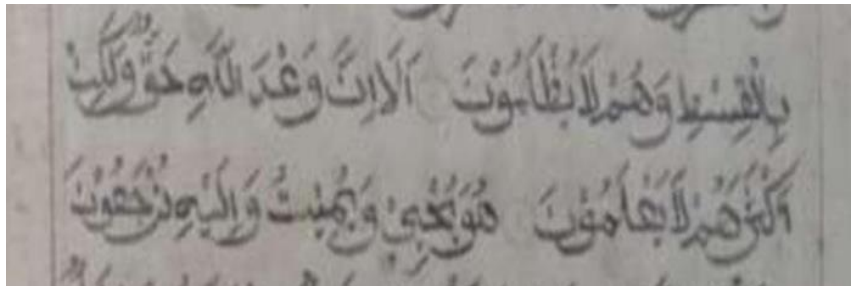 بِالْقِسْطِ وَهُمْ لَا يُظْلَمُوْنَ اَلَا اِنَّ وَعْدَ اللَّهِ حَقٌّ وَّلٰكِنَّ
اَكْثَرَهُمْ لَا يَعْلَمُوْنَ هُوَ يُحْيِيْ وَيُمِيْتُ وَاِلَيْهِ تُرْجَعُوْنَ